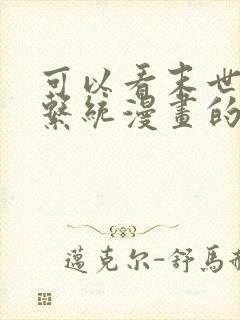 可以看末世
繫統漫畫的
邁克尔-舒馬赫